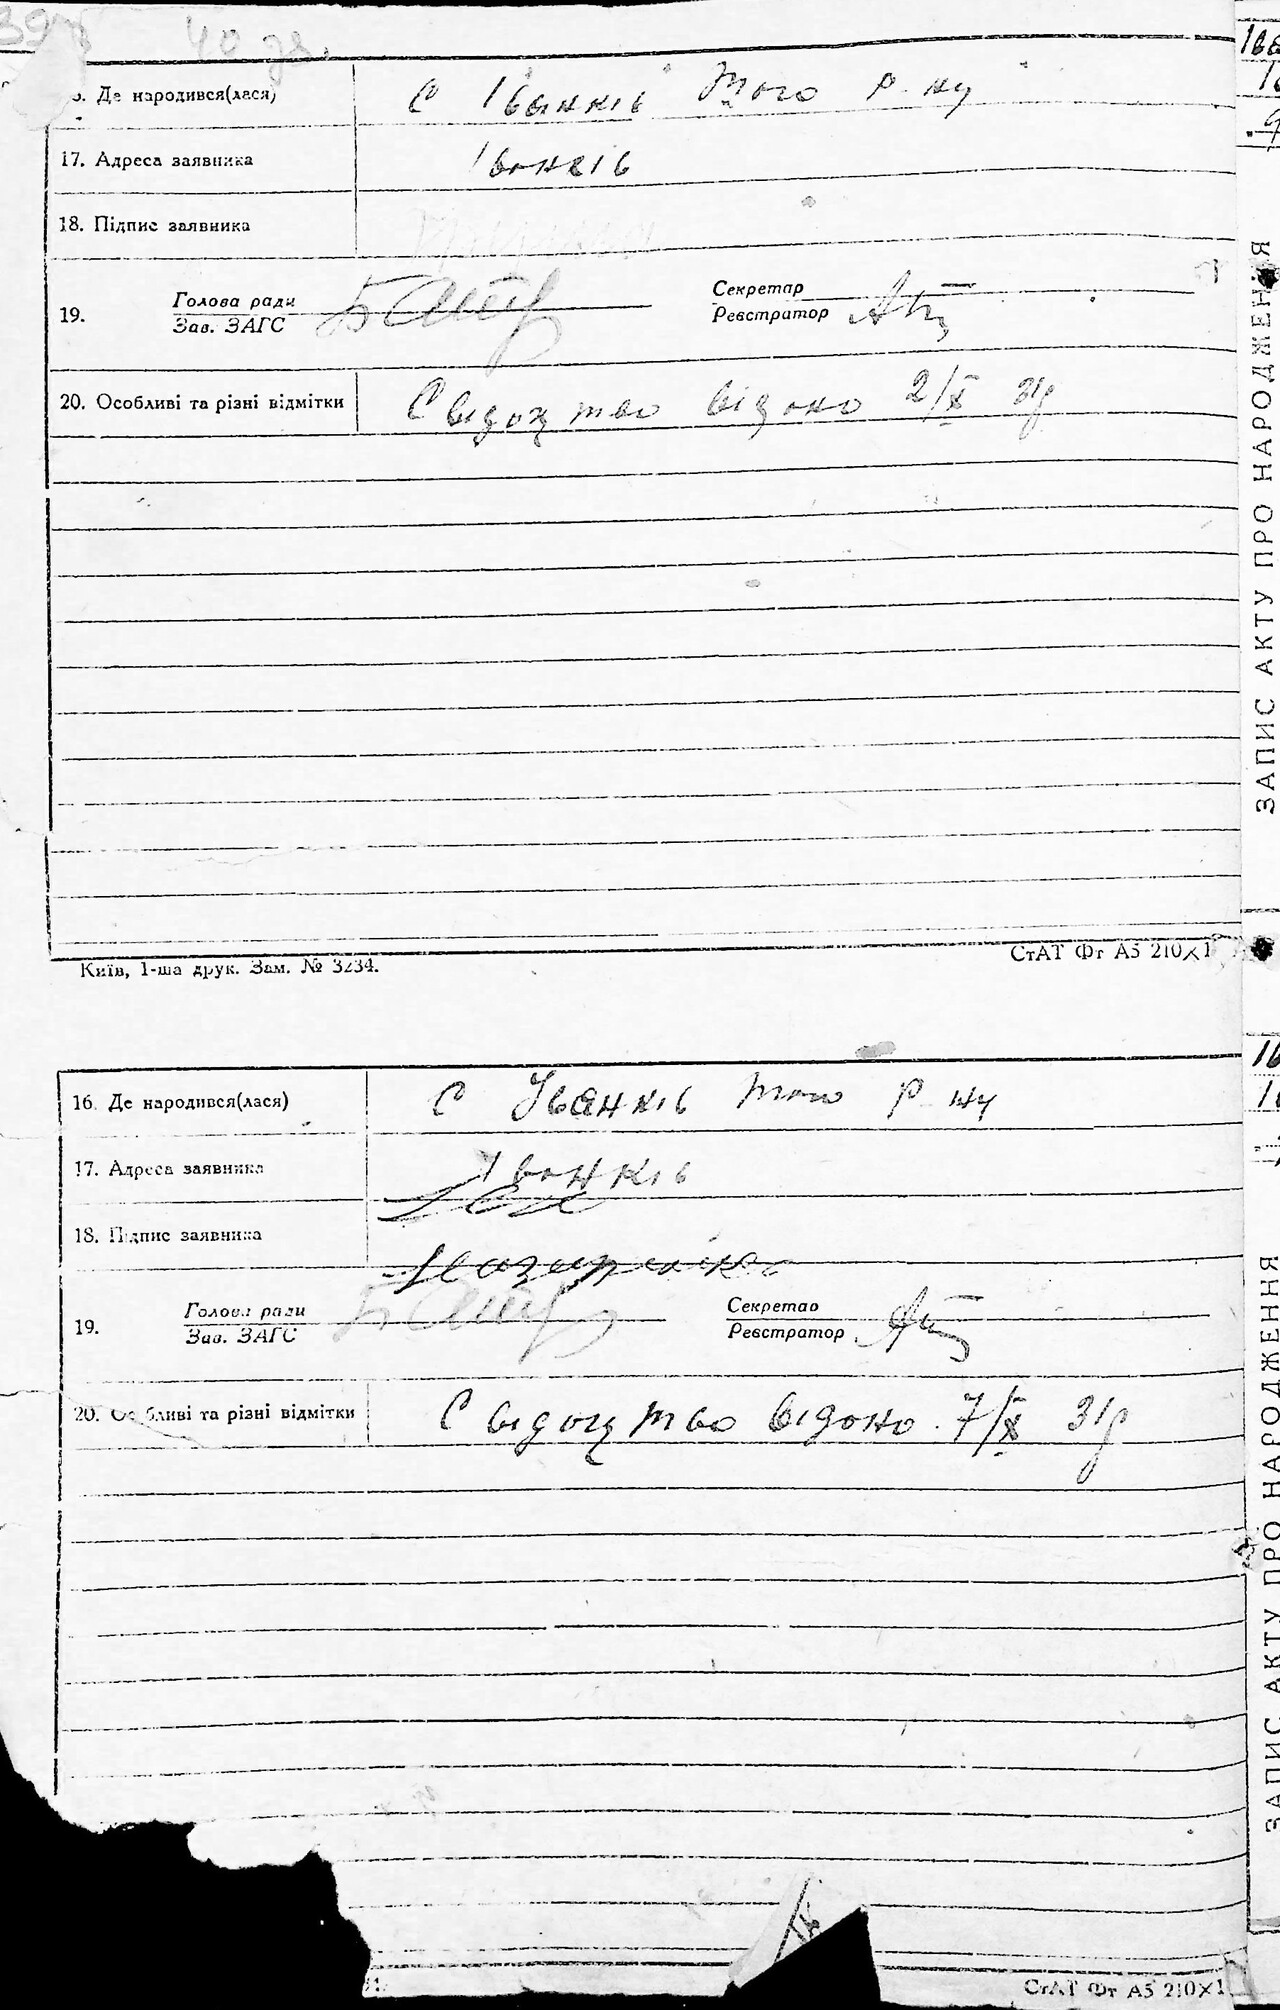 39 40 зв.
6. Де народився(лася) С Іванків того р-ну
17. Адреса заявника Іванків
18. Підпис заявника
19. Голова ради Секретар
Зав. ЗАГС Реєстратор
20. Особливі та різні відмітки Свідоцтво відано 2/X 31р
Київ, 1-ша друк. Зам. № 3234.
СтАТ Фт А5 210×1
16. Де народився(лася) С Іванків того р-ну
17. Адреса заявника Іванків
18. Підпис заявника
19. Голова ради Секретар
Зав. ЗАГС Реєстратор
20. Особливі та різні відмітки Свідоцтво відано 7/X 31р
СтАТ Фт А5 210×1
ЗАПИС АКТУ ПРО НАРОДЖЕННЯ
ЗАПИС АКТУ ПРО НАРОДЖЕННЯ